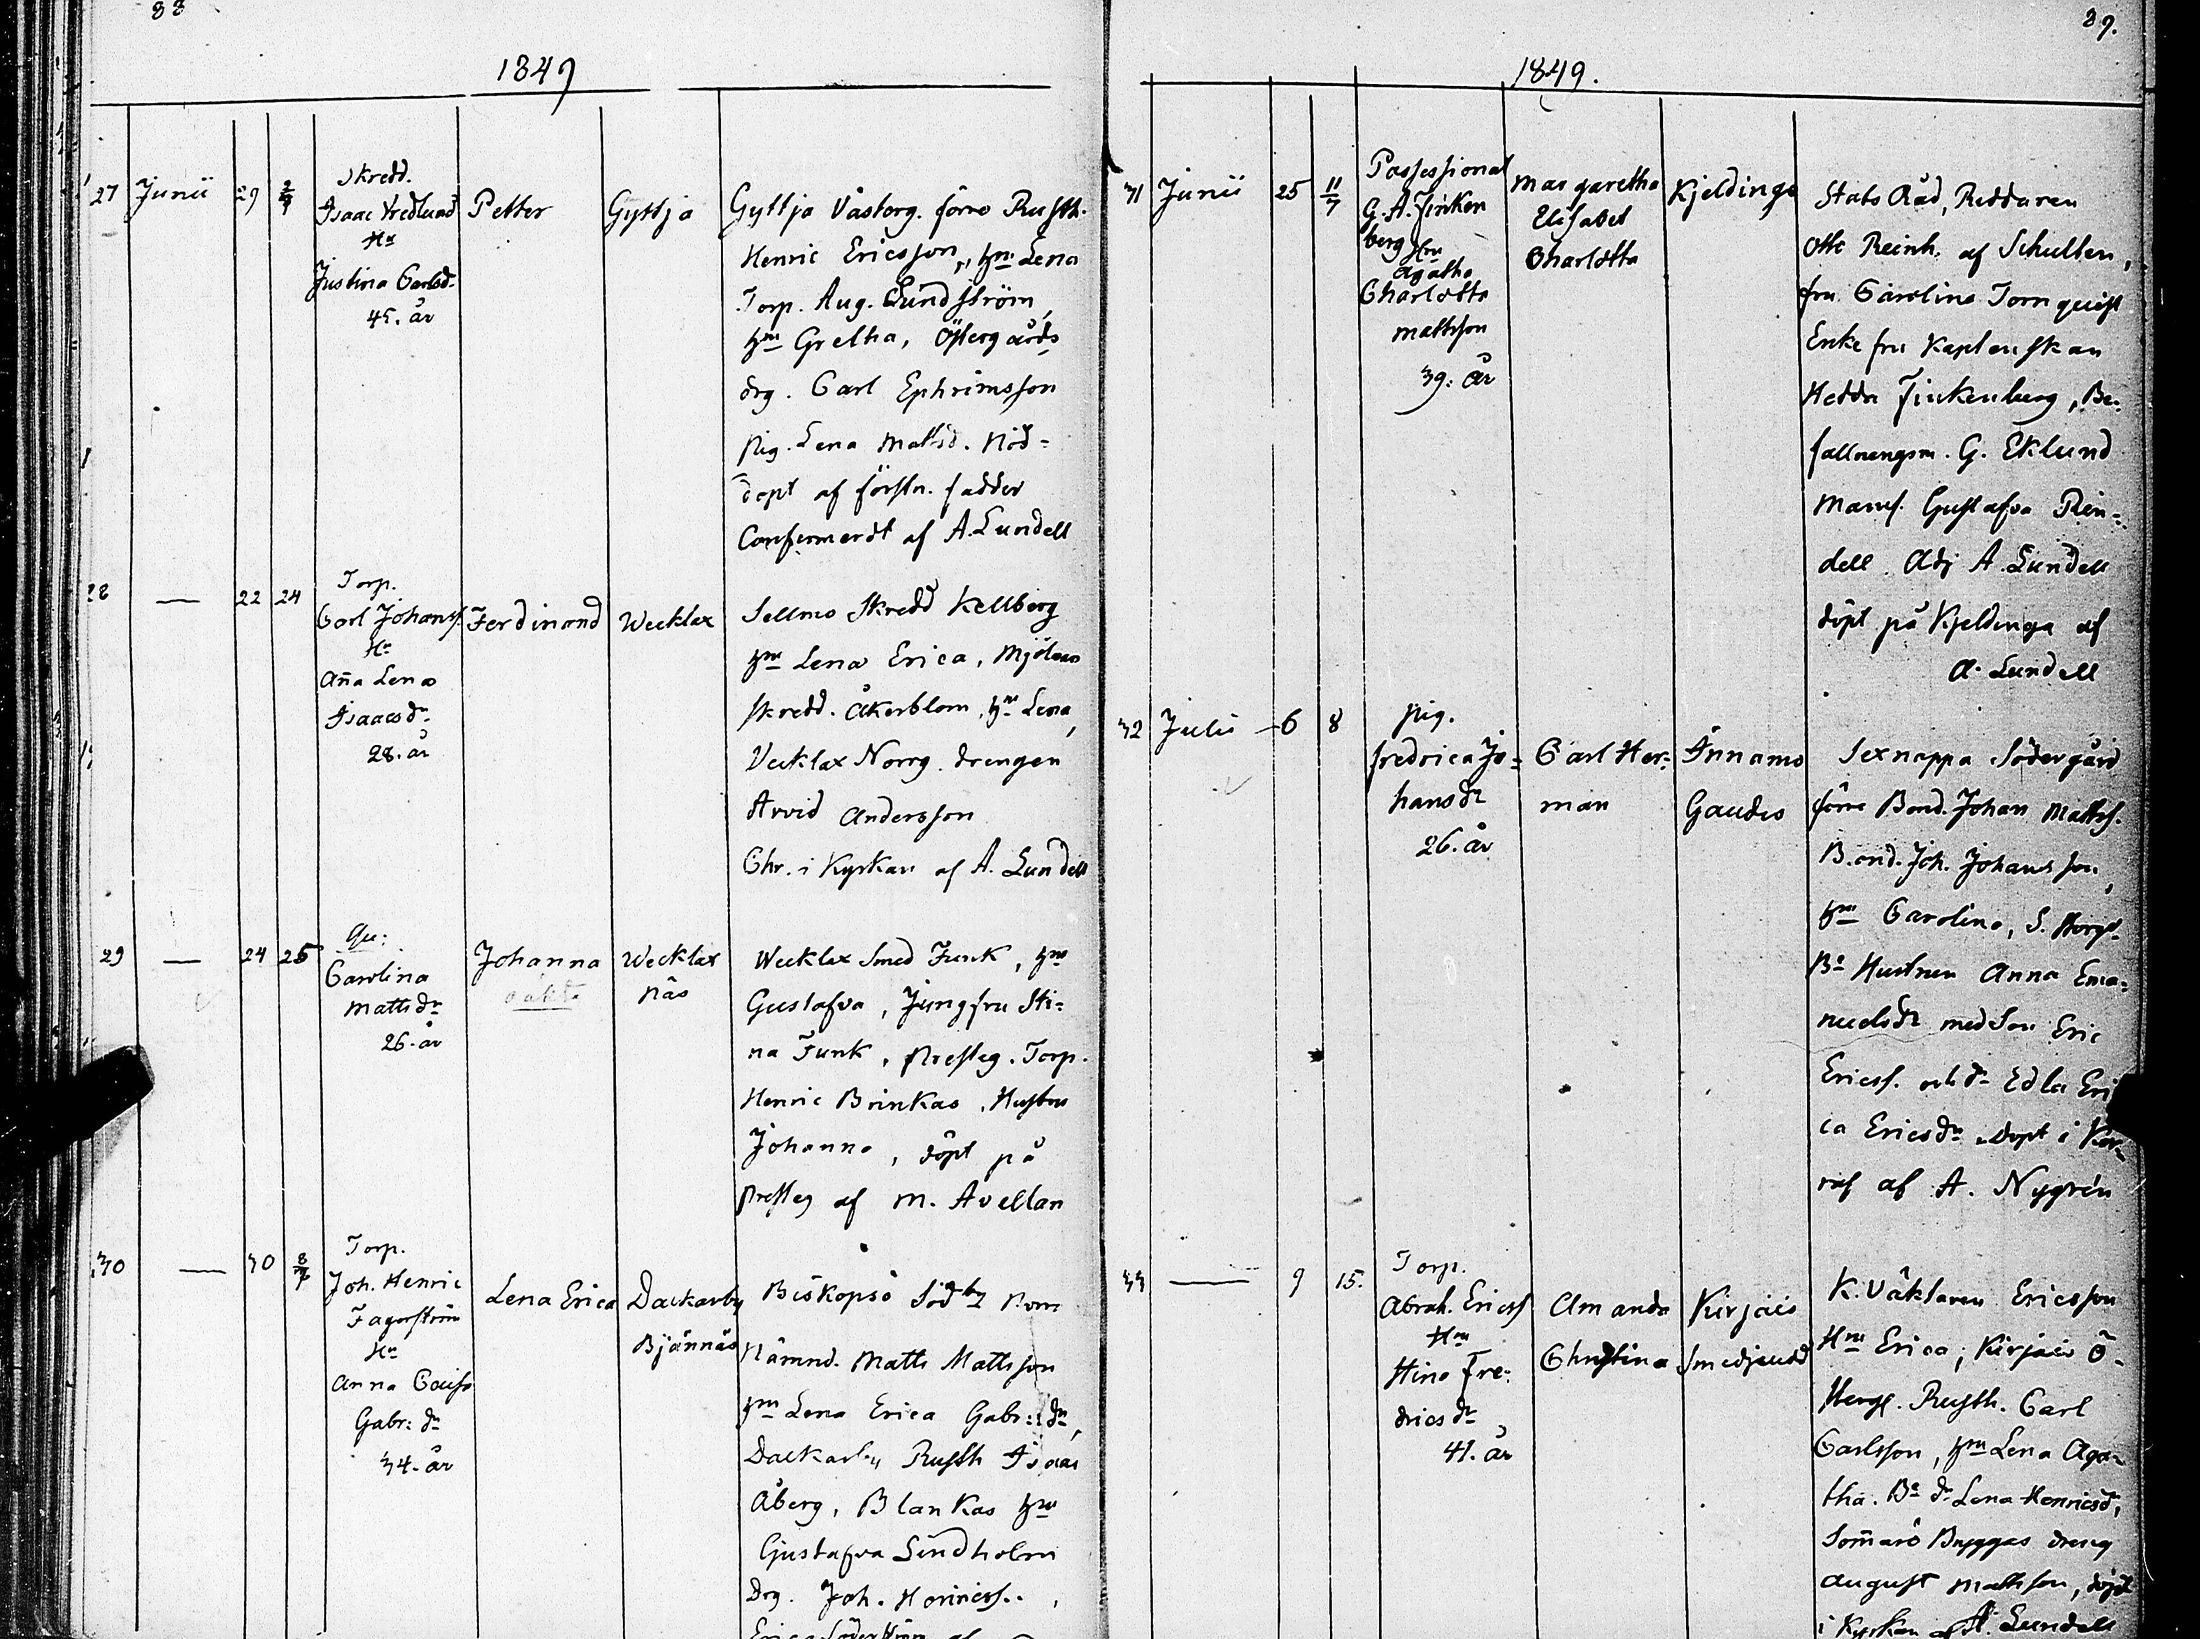 88
1849
27 Junii 29 2/7
Skredd.
Isaac Fredlund
Hu
Justina Carlsd.
45. år
Petter
Gyttja
Gyttja Västerg. förre Rusth.
Henric Ericsson, hu Lena
Torp. Aug. Lundström,
hu Gretha, Östergårds
drg. Carl Ephrimsson
pig. Lena Mattsd. Nöd-
döpt af förstn. fadder
Confirmerdt af A. Lundell
28 — 22 24
Torp.
Carl Johanss.
Hu
Aña Lena
Isaacsdr.
28. år
Ferdinand
Wecklax
Sellmo Skredd Kellberg
hu Lena Erica, Mjölnar
skredd. Åkerblom, hu Lena,
Vecklax Norrg. drengen
Arvid Andersson
Chr. i Kyrkan af A. Lundell
29 — 24 25
Qv:
Carolina
Mattsdr
26. år
Johanna
oäkta
Wecklax
näs
Wecklax Smed Funk, hu
Gustafva, Jungfru Sti-
na Funk, Presteg. Torp.
Henric Brinkas, Hustru
Johanna, döpt på
Presteg af M. Avellan
30 — 30 8/7
Torp.
Joh. Henric
Fagerström
Hu
Anna Caisa
Gabr: dr
34. år
Lena Erica
Dalkarby
Björnnäs
Biskopsö Södby
Nämnd. Matts Mattsson
hu Lena Erica Gabr: dr,
Dalkarby Rusth Isaac
Åberg, Blankas hu
Gustafva Lindholm
Drg. Joh. Henricss.,
Erica Söderström af
89.
1849.
31 Junii 25 11/7
Possessionat
G. A. Finken
berg Hu
Agatha
Charlotta
Mattsson
39. år
Margaretha
Elisabet
Charlotta
Kjeldinge
Stats Råd, Riddaren
Otto Reinh. af Schulten,
fru Carolina Tornquist
Enke fru Kaptenskan
Hedda Finkenberg, Be-
fallnengsm. G. Eklund
Mams. Gustafva Rin-
dell Adj A Lundell
döpt på Kjeldinga af
A. Lundell
32 Julii — 6 8
pig.
Fredrica Jo-
hansdr
26. år
Carl Her-
man
Ännamo
Gaudis
Sexnappa Södergård
förre Bond. Johan Mattss.
Bond. Joh. Johansson,
hu Carolina, S.
Bs Hustrun Anna Ema-
nuelsdr med Son Eric
Ericss. och dr Edla Eri
ca Ericsdr döpt i
af A. Nygrén
33 — 9 15.
Torp.
Abrah. Ericss
Hu
Stina Fre-
dricsdr
41. år
Amanda
Christina
Kirjais
K. Väktaren Ericsson
Hu Erica, Kirjais Ö-
Rusth. Carl
Carlsson, hu Lena Aga-
tha. Bs dr Lena Henricsd,
Som̄arö Byggas dreng
August Mattsson, döpt
i Kyrkan af A. Lundell